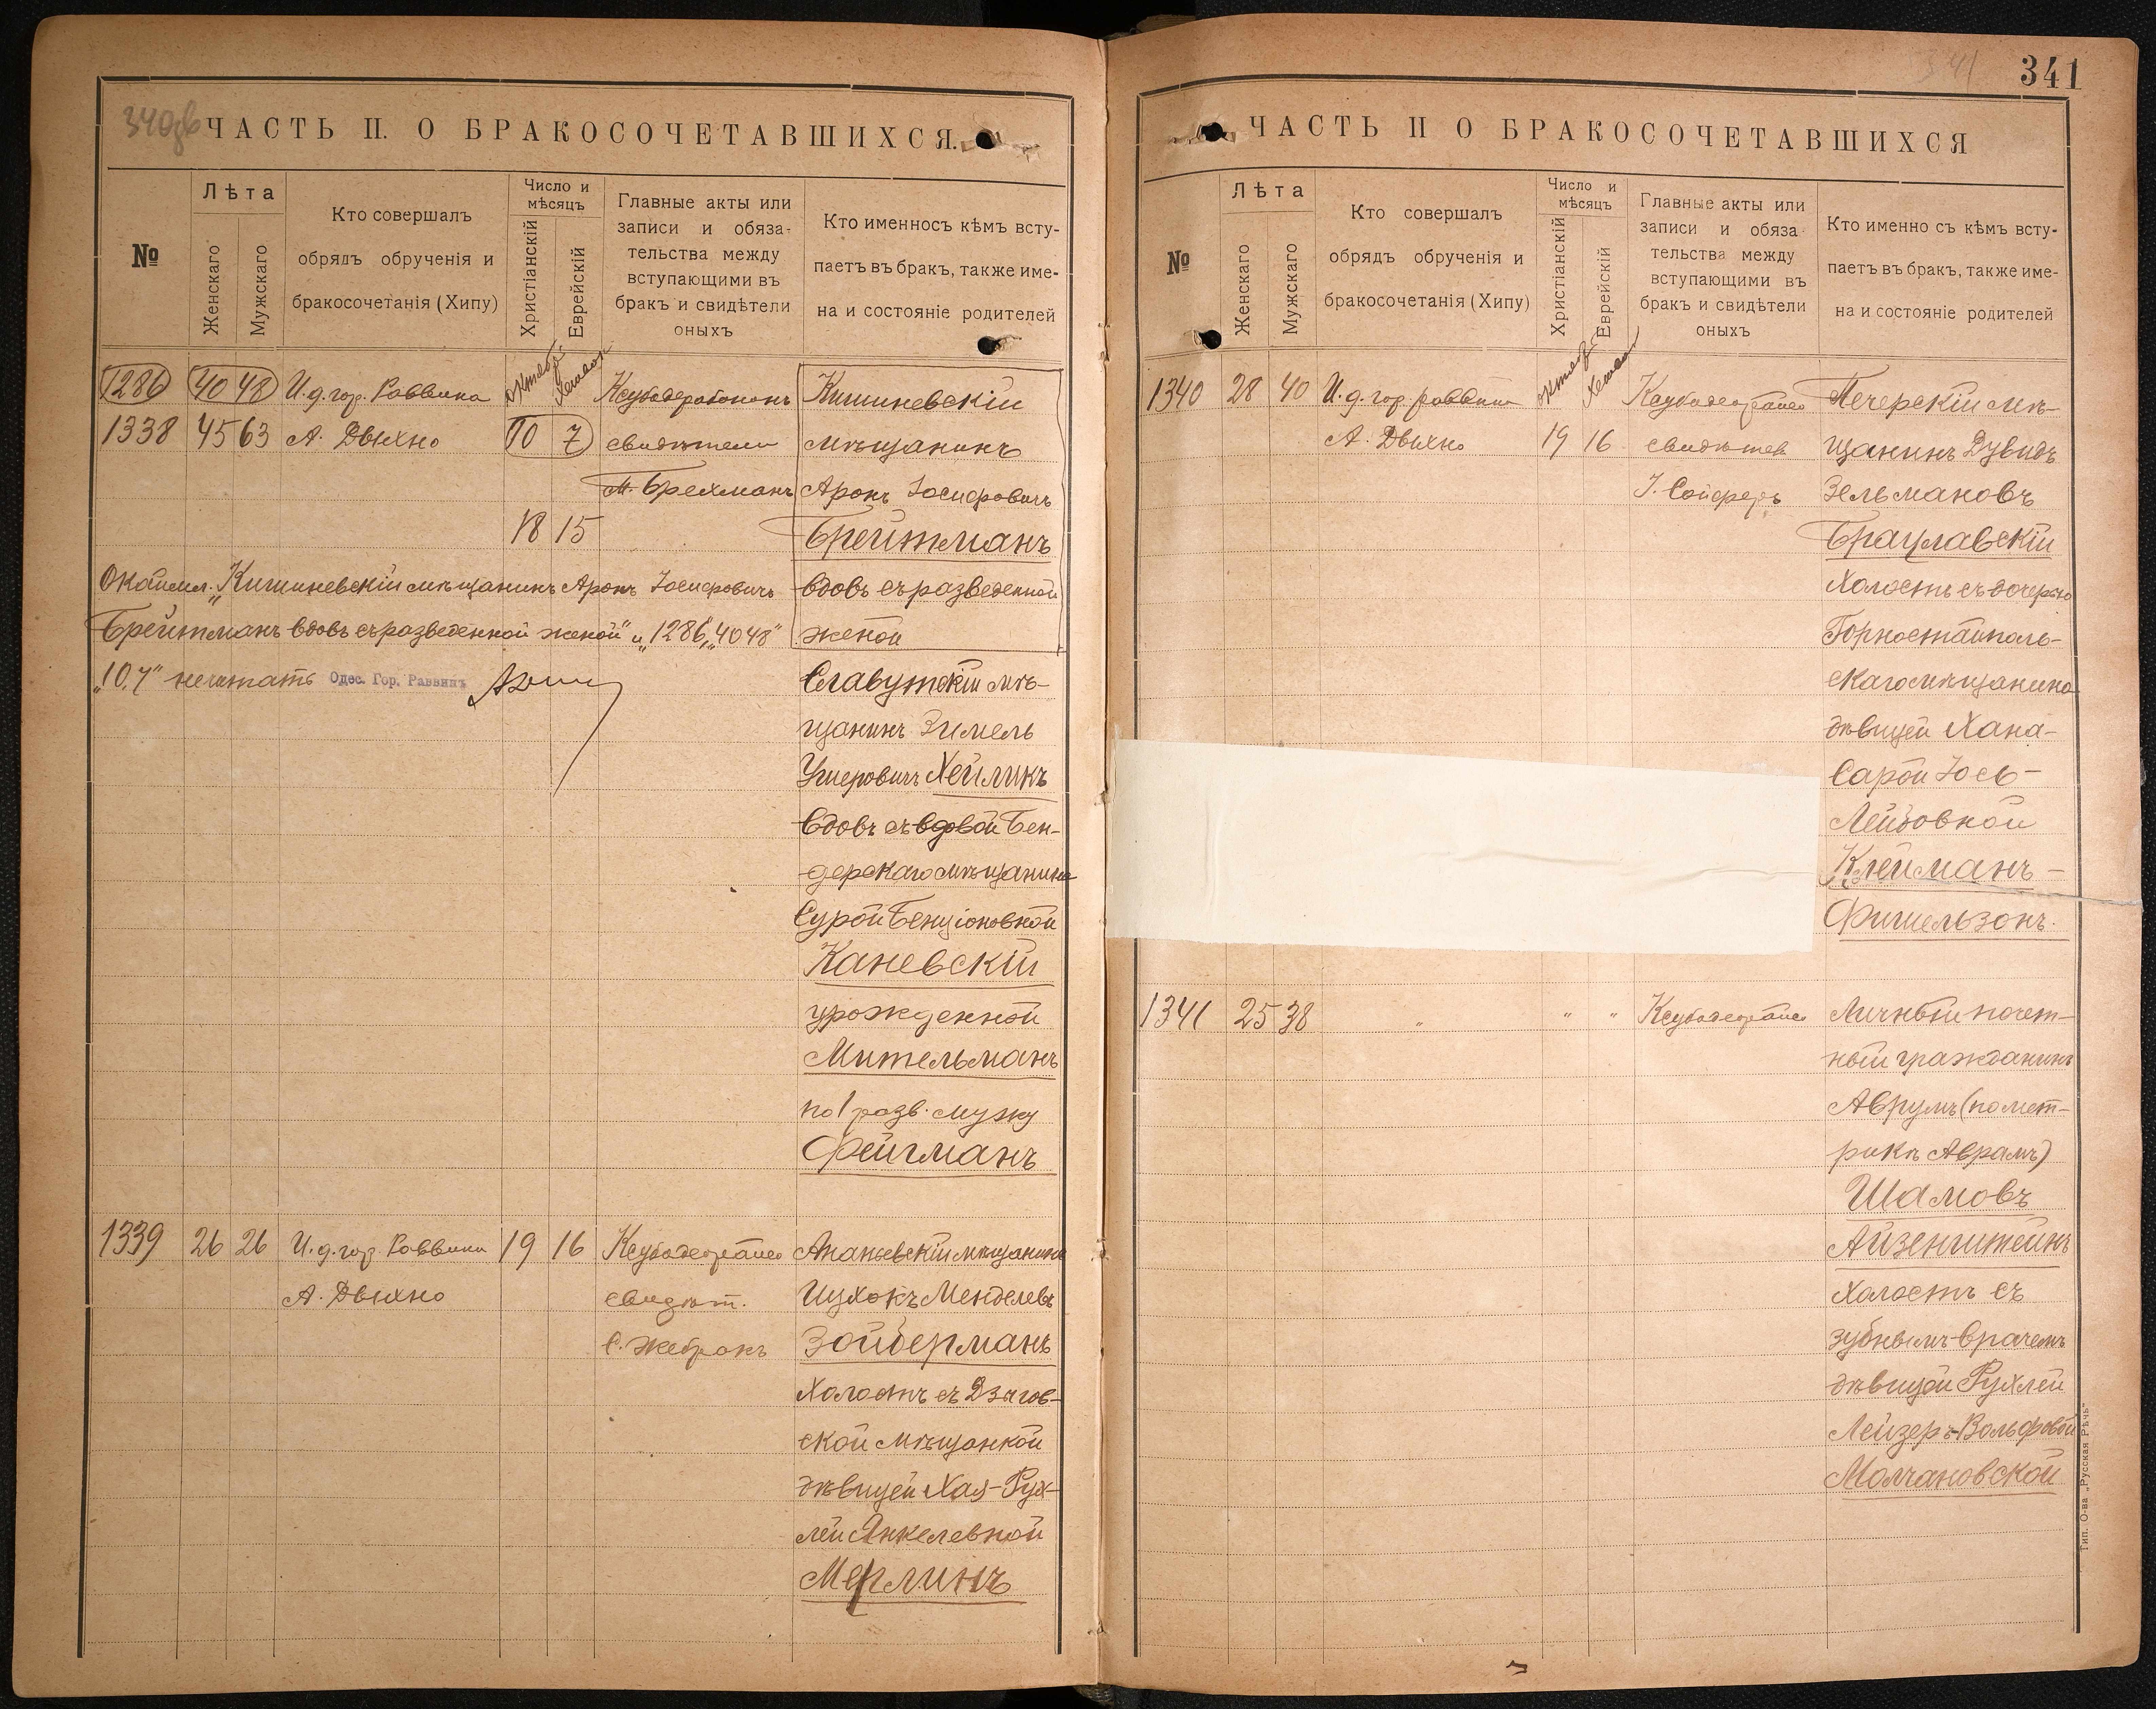 340об
ЧАСТЬ II. О БРАКОСОЧЕТАВШИХСЯ.
№
Лѣта
Женскаго
Мужскаго
Кто совершалъ
обрядъ обрученія и
бракосочетанія (Хипу)
Число и
мѣсяцъ
Христіанскій
Еврейскій
Главные акты или
записи и обяза-
тельства между
вступающими въ
бракъ и свидѣтели
оныхъ
Кто именносъ кѣмъ всту-
паетъ въ бракъ, также име-
на и состояніе родителей
1286 40 48 И.д. гор. Раввина октябр. Хешвон
Кишиневскій
1338 45 63 А. Двихно 10 7 свидѣтели мѣщанинъ
М. Брехманъ Аронъ Іосифовичъ
18 15 Брейтманъ
вдовъ съ разведенной
женой
Окаймл. „Кишиневскій мѣщанинъ Аронъ Іосифовичъ
Брейтманъ вдовъ съ разведенной женой" и „1286", „40 48"
„10,7" не читать Одес. Гор. Раввинъ
Славутскій мѣ-
щанинъ Зимель
Ушеровичъ Хейликъ
вдовъ съ вдовой Бен-
дерскаго мѣщанина
Сурой Бенціоновной
Каневскій
урожденной
Мительманъ
по 1 разв. мужу
Фейгманъ
1339 26 26 И.д. гор. Раввина 19 16 Ананьевскій мѣщанинъ
А. Двихно свидѣт. Ицхокъ Менделевъ
С. Жебракъ Зойберманъ
Холостъ съ Дзыгов-
ской мѣщанкой
дѣвицей Хая-Рух-
лей Янкелевной
Мерлинъ
341
341
ЧАСТЬ II О БРАКОСОЧЕТАВШИХСЯ
№
Лѣта
Женскаго
Мужскаго
Кто совершалъ
обрядъ обрученія и
бракосочетанія (Хипу)
Число и
мѣсяцъ
Христіанскій
Еврейскій
Главные акты или
записи и обяза
тельства между
вступающими въ
бракъ и свидѣтели
оныхъ
Кто именно съ кѣмъ всту-
паетъ въ бракъ, также име-
на и состояніе родителей
1340 28 40 И.д. гор. раввина октябр Хешвон Печерскій мѣ-
А. Двихно 19 16 свидѣтел щанинъ Дувидъ
І. Сойферъ Зельмановъ
Брацлавскій
Холостъ съ дочерью
Горностайполь-
скаго мѣщанина
дѣвицей Хана-
Сарой Іось-
Лейбовной
Клейманъ-
Фишельзонъ.
1341 25 38 " " " Личный почет-
ный гражданинъ
Аврумъ (по мет-
рикѣ Аврамъ)
Шамовъ
Айзенштейнъ
холостъ съ
зубнымъ-врачемъ
дѣвицей Рухлей
Лейзеръ-Вольфовой
Молчановской
Тип. О-ва „Русская Рѣчь"